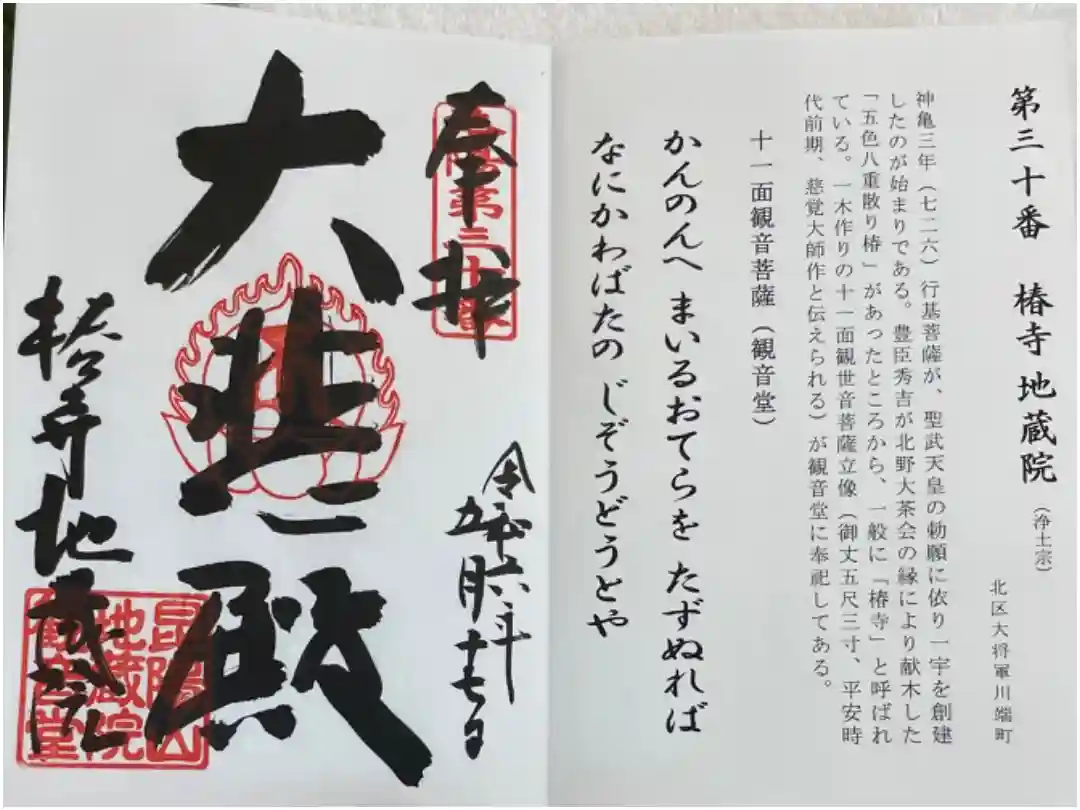 第三十番 椿寺 地蔵院 (浄土宗)
北区大将軍川端町
神亀三年(七二六)行基菩薩が、聖武天皇の勅願に依り一宇を創建
したのが始まりである。豊臣秀吉が北野大茶会の縁により献木した
「五色八重散り椿」があったところから、一般に「椿寺」と呼ばれ
ている。一木作りの十一面観世音菩薩立像(御丈五尺三寸、平安時
代前期、慈覚大師作と伝えられる)が観音堂に奉祀してある。
十一面観音菩薩(観音堂)
かんのんへ まいるおてらを たずぬれば
なにかわばたの じぞうどうとや
奉拝
令和六年
五月十七日
大悲殿
椿寺地蔵院
昆陽山
地蔵院
観音堂